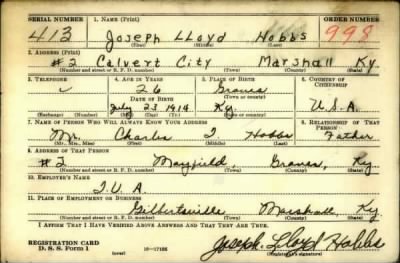 SERIAL NUMBER 1. NAME (Print) ORDER NUMBER
413 Joseph LLoyd Hobbs 998
(First) (Middle) (Last)
2. ADDRESS (Print)
#2 Calvert City Marshall Ky
(Number and street or R. F. D. number) (Town) (County) (State)
3. TELEPHONE 4. AGE IN YEARS 5. PLACE OF BIRTH 6. COUNTRY OF CITIZENSHIP
26 Graves
DATE OF BIRTH (Town or county)
July 23 1914 Ky. U.S.A.
(Mo.) (Day) (Yr.) (State or country)
7. NAME OF PERSON WHO WILL ALWAYS KNOW YOUR ADDRESS 8. RELATIONSHIP OF THAT PERSON
Mr. Charles T Hobbs Father
(Mr., Mrs., Miss) (First) (Middle) (Last)
9. ADDRESS OF THAT PERSON
#2 Mayfield, Graves, Ky
(Number and street or R. F. D. number) (Town) (County) (State)
10. EMPLOYER'S NAME
T.V.A.
11. PLACE OF EMPLOYMENT OR BUSINESS
Gilbertsville Marshall, Ky.
(Number and street or R. F. D. number) (Town) (County) (State)
I AFFIRM THAT I HAVE VERIFIED ABOVE ANSWERS AND THAT THEY ARE TRUE.
REGISTRATION CARD
D. S. S. Form 1 (over) 16—17105 Joseph Lloyd Hobbs
(Registrant's signature)